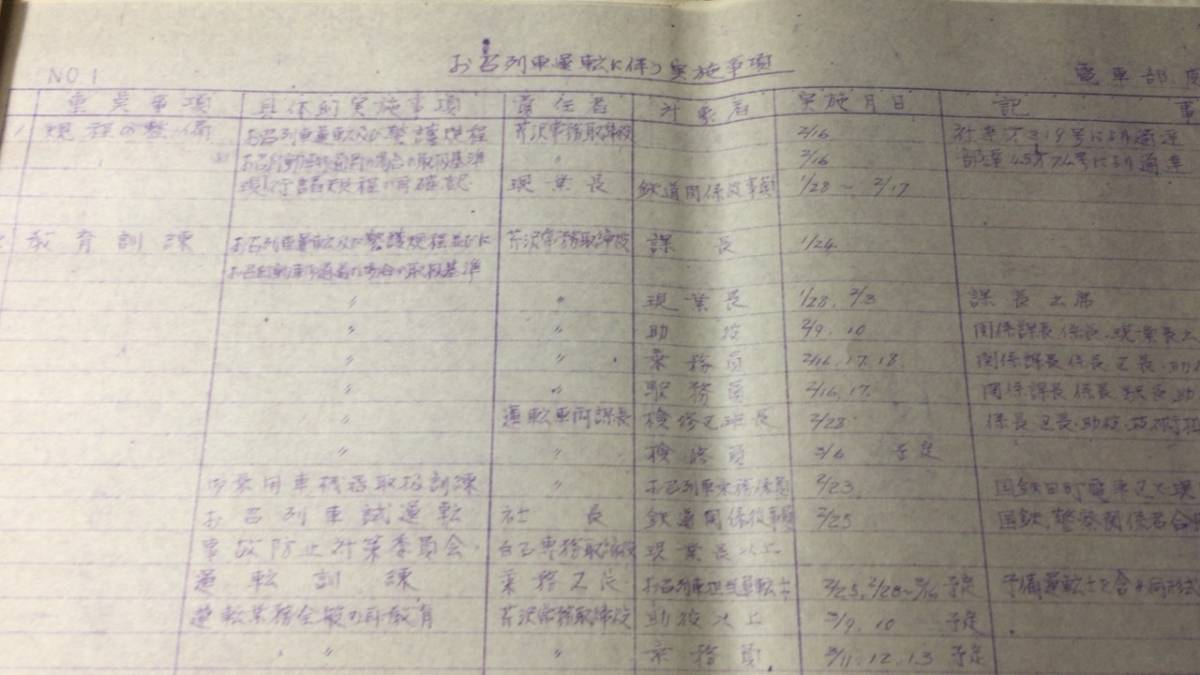 お召列車運転に伴う実施事項
NO.1 電車部
重点事項 具体的実施事項 責任者 対象者 実施月日 記 事
規程の整備 お召列車運転及び警護規程 芹沢常務取締役 2/16 社達才319号により通達
お召 の場合の取扱基準 〃 2/16 により通達
現行諸規程の再確認 現業長 鉄道関係従事員 1/28〜2/17
教育訓練 お召列車運転及び警護規程並びに 芹沢常務取締役 課長 1/24
お召 の場合の取扱基準
〃 〃 現業長 1/28, 2/3 課長出席
〃 〃 助役 2/9, 10 関係課長係長、現業長
〃 〃 乗務員 2/16,17,18 関係課長係長区長・助
〃 〃 駅務員 2/16,17 関係課長係長駅長助
〃 運転車両課長 検修区班長 2/28 係長区長・助役
〃 〃 検修員 3/6 予定
御乗用車機器取扱訓練 〃 お召列車 2/23 国鉄田町電車区
お召列車試運転 社長 鉄道関係従事員 2/25 国鉄、警察関係者
事故防止対策委員会 白石専務取締役 現業長以上
運転訓練 乗務区長 お召列車担当運転士 2/25, 2/28〜 予定 予備運転士を含
運転業務全般の再教育 芹沢常務取締役 助役以上 3/9, 10 予定
〃 〃 〃 乗務員 3/11, 12, 13 予定